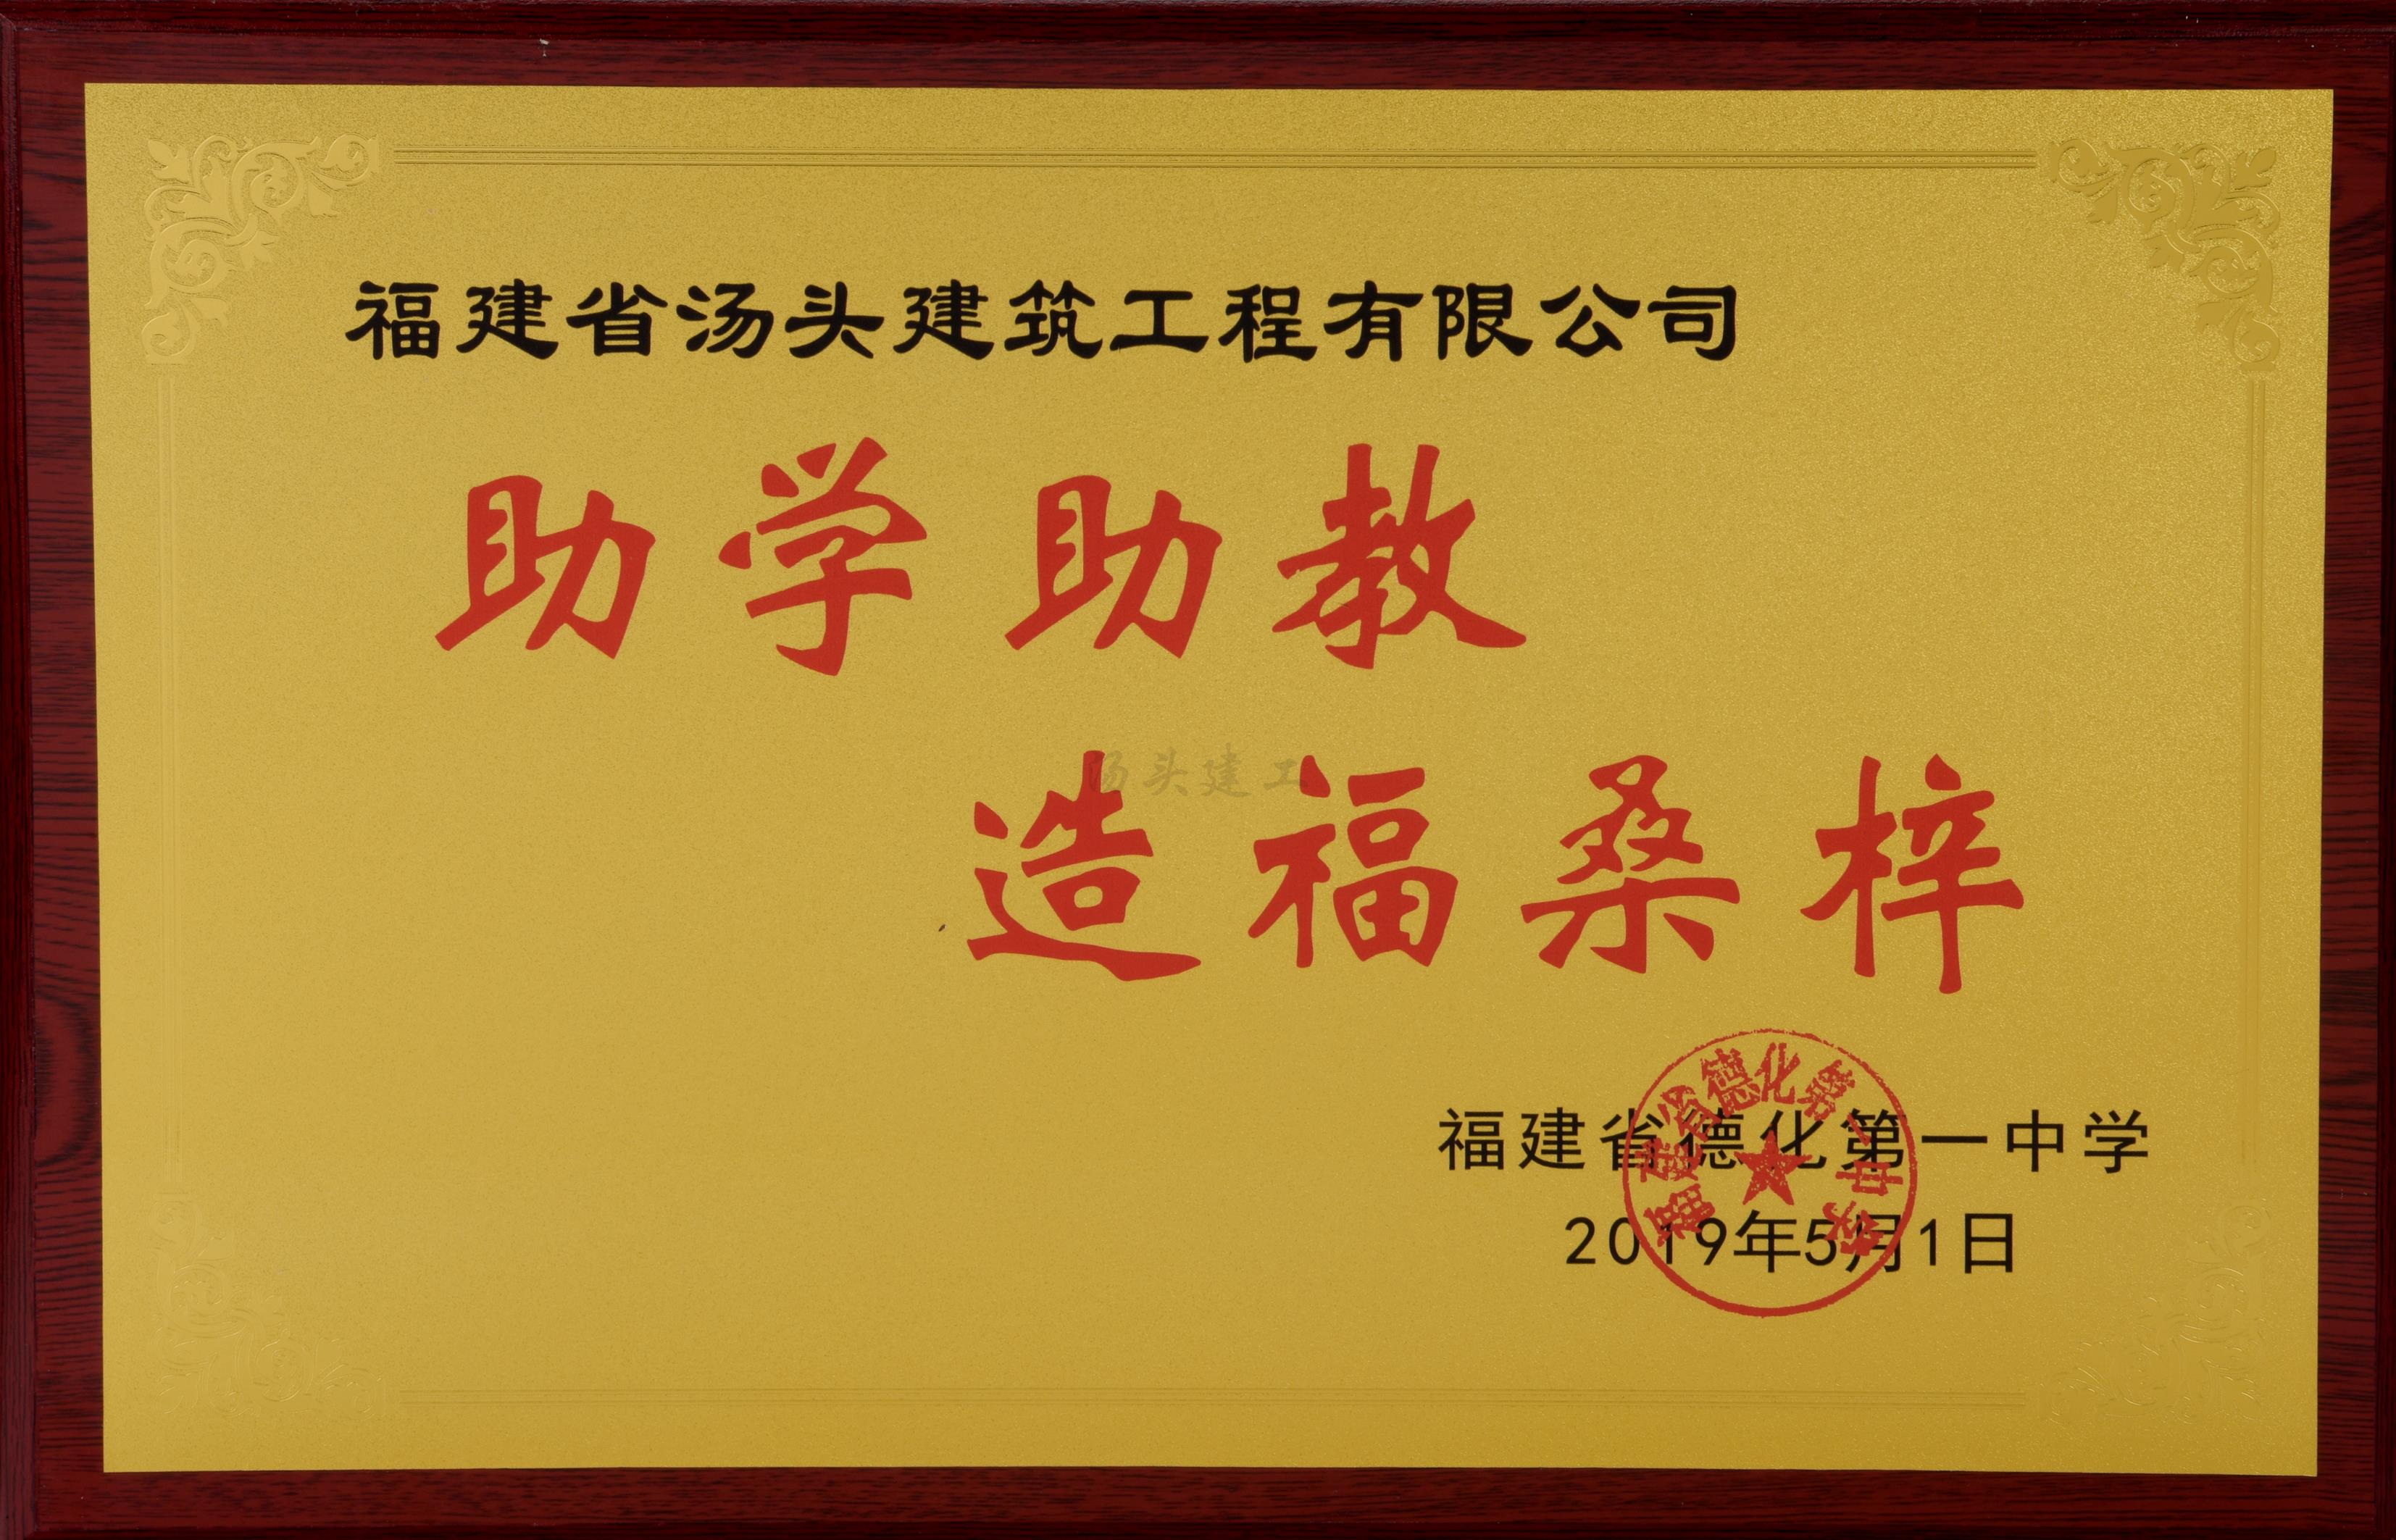 福建省汤头建筑工程有限公司
助学助教
汤头建工
造福桑梓
福建省德化第一中学
福建省德化第一中学
2019年5月1日